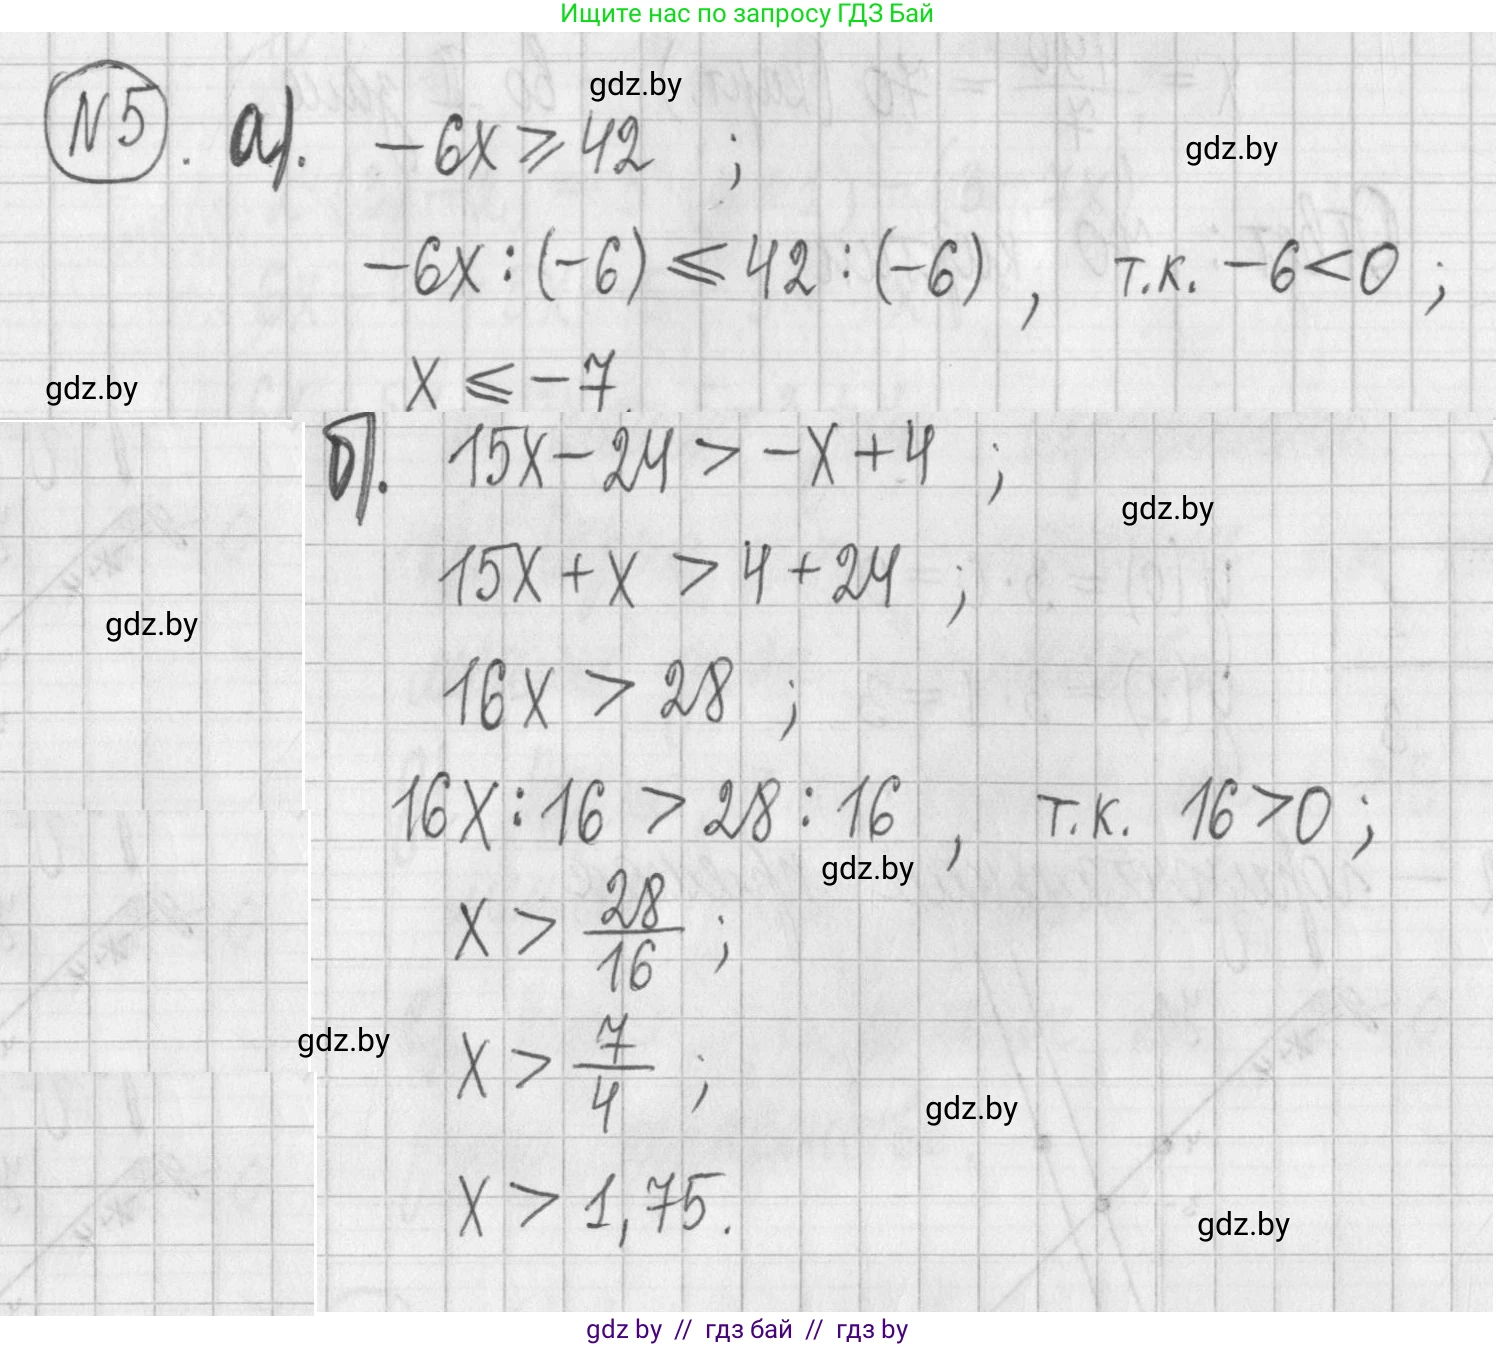 Ищите нас по запросу ГДЗ Бай
gdz.by
№5. а). -6x ⩾ 42 ;
gdz.by
-6x : (-6) ⩽ 42 : (-6) , т.к. -6 < 0 ;
x ⩽ -7
gdz.by
б). 15x - 24 > -x + 4 ;
gdz.by
15x + x > 4 + 24 ;
gdz.by
16x > 28 ;
16x : 16 > 28 : 16 , т.к. 16 > 0 ;
gdz.by
x > 28/16 ;
x > 7/4 ;
gdz.by
gdz.by
x > 1,75.
gdz.by
gdz by // гдз бай // гдз by